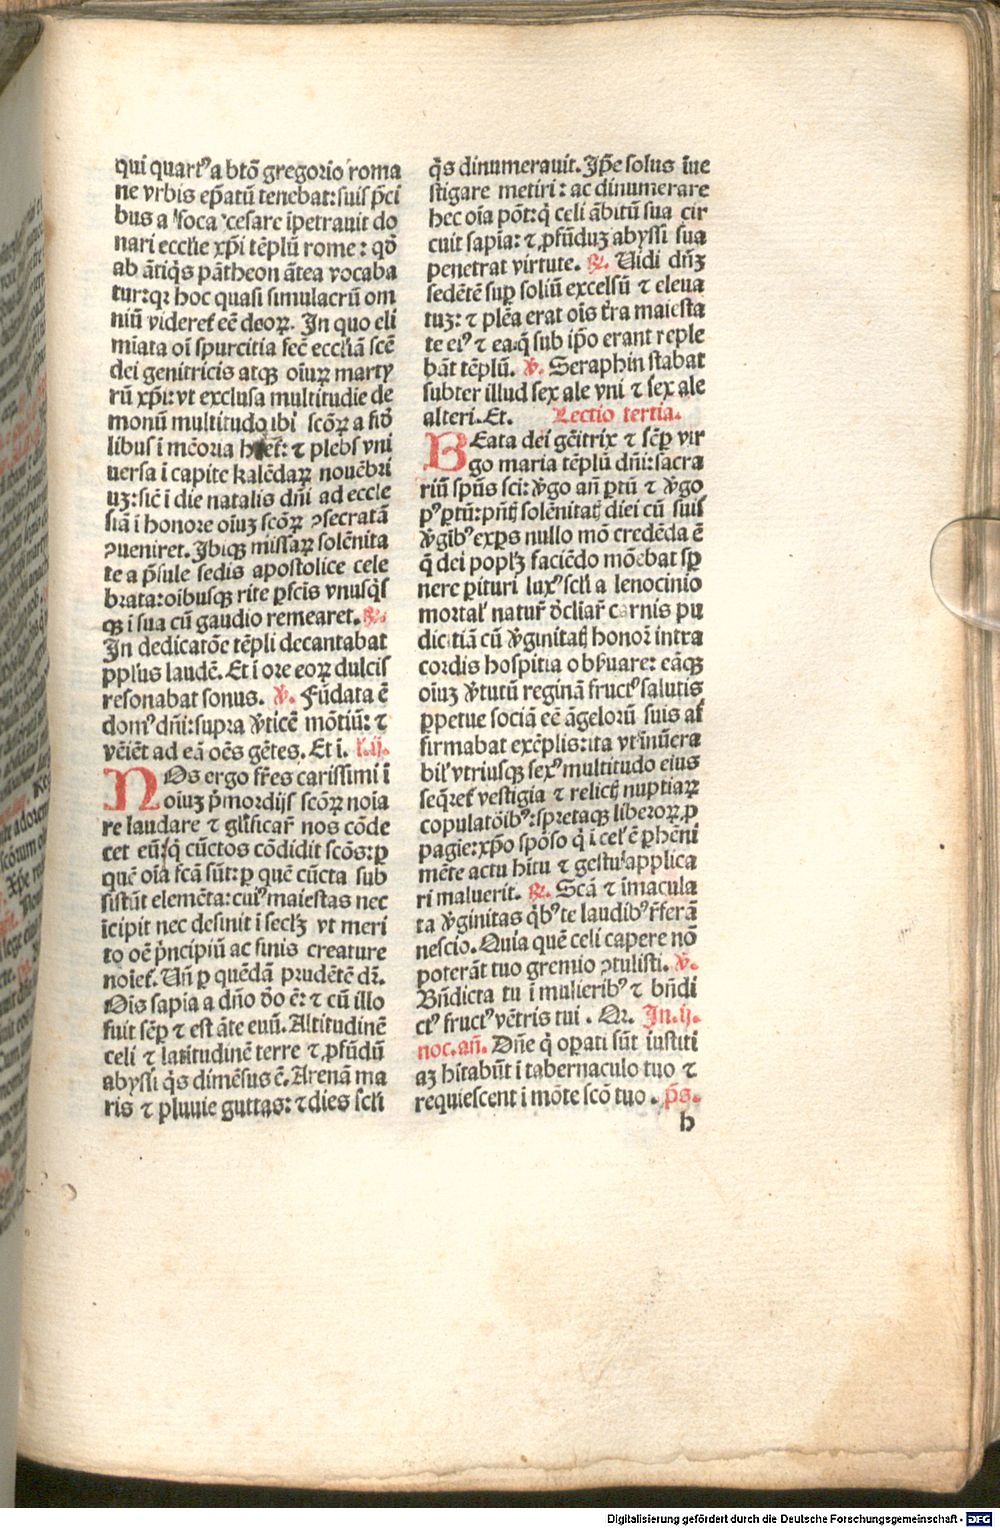 qui quartꝰ a btō gregorio roma
ne vrbis ep̄atū tenebat:suis p̄ci
bus a foca cesare īpetrauit do
nari eccl̄ie xp̄i tēplū rome: qd̄
ab ātiq̄s pātheon ātea vocaba
tur:qꝛ hoc quasi simulacrū om
niū videret̄ eē deoꝝ. In quo eli
miata oī spurcitia fec̄ eccl̄iā scē
dei genitricis atqꝫ oīuꝝ marty
rū xp̄i:vt exclusa multitudie de
monū multitudo ibi scōꝝ a fid̄
libus ī mēoria het̄: ⁊ plebs vni
uersa ī capite kalēdaꝝ nouēbri
uꝫ:sic̄ ī die natalis dn̄i ad eccle
siā ī honore oīuꝫ scōꝝ ꝯsecratā
ꝯueniret. Ibiqꝫ missaꝝ solēnita
te a p̄sule sedis apostolice cele
brata:oībusqꝫ rite ꝑfc̄is vnusq̄s
qꝫ ī sua cū gaudio remearet. ℟.
In dedicatōe tēpli decantabat
ppl̄us laudē. Et ī ore eoꝝ dulcis
resonabat sonus. ℣. Fūdata ē
domꝰ dn̄i:supra v̄ticē mōtiū: ⁊
vēiēt ad eā oēs gētes. Et ī. l̄.ij.
NOs ergo fr̄es carissimi ī
oīuꝫ p̄mordijs scōꝝ noīa
re laudare ⁊ gl̄ificar̄ nos cōde
cet eū:q̄ cūctos cōdidit scōs:ꝑ
quē oīa fcā sūt:ꝑ quē cūcta sub
sistūt elemēta:cuiꝰ maiestas nec
īcipit nec desinit ī secl̄ꝫ vt meri
to oē p̄ncipiū ac finis creature
noīet̄. Un̄ ꝑ quēdā prudētē dr̄.
Oīs sapīa a dn̄o dō ē: ⁊ cū illo
fuit sēꝑ ⁊ est āte euū. Altitudinē
celi ⁊ latitudinē terre ⁊ ꝓfūdū
abyssi q̄s dimēsus ē. Arenā ma
ris ⁊ pluuie guttas: ⁊ dies scl̄i
q̄s dinumerauit. Ip̄e solus īue
stigare metiri: ac dinumerare
hec oīa pōt:q̄ celi ābitū sua cir
cuit sapīa: ⁊ ꝓfūduꝫ abyssi sua
penetrat virtute. ℟. Uidi dn̄ꝫ
sedētē suꝑ soliū excelsū ⁊ eleua
tuꝫ: ⁊ plēa erat oīs tr̄a maiesta
te eiꝰ ⁊ ea q̄ sub ip̄o erant reple
bāt tēplū. ℣. Seraphin stabat
subter illud sex ale vni ⁊ sex ale
alteri.Et. Lectio tertia.
BEata dei gēitrix ⁊ sēꝑ vir
go maria tēplū dn̄i:sacra
riū spūs sci: v̄go an̄ ꝑtū ⁊ v̄go
pꝰ ꝑtū:pn̄tꝭ solēnitatꝭ diei cū suis
v̄gibꝰ exꝑs nullo mō credēda ē
q̄ dei popl̄ꝫ faciēdo mōebat sꝑ
nere ꝑituri luxꝰ scl̄i a lenocinio
mortal̄ natur̄ d̄cliar̄ carnis pu
dicitiā cū v̄ginitatꝭ honor̄ intra
cordis hospitia obẜuare: eāqꝫ
oīuꝫ v̄tutū reginā fructꝰ salutis
ꝑpetue sociā eē āgelorū suis af
firmabat exēplis:ita vt īnūera
bil̄ vtriusqꝫ sexꝰ multitudo eius
seq̄ret̄ vestigia ⁊ relictꝭ nuptiaꝝ
copulatōibꝰ:spretaqꝫ liberoꝝ ꝓ
pagie:xp̄o spōso q̄ ī cel̄ ē ꝑhēni
mēte actu hītu ⁊ gestu applica
ri maluerit. ℟. Scā ⁊ īmacula
ta v̄ginitas q̄bꝰ te laudibꝰ r̄ferā
nescio. Quia quē celi capere nō
poterāt tuo gremio ꝯtulisti. ℣.
Bn̄dicta tu ī mulieribꝰ ⁊ bn̄di
ctꝰ fructꝰ vētris tui . Qr. In.ij.
noc.an̄. Dn̄e q̄ oꝑati sūt iustiti
aꝫ hītabūt ī tabernaculo tuo ⁊
requiescent ī mōte scō tuo . p̄s.
b
Digitalisierung gefördert durch die Deutsche Forschungsgemeinschaft - DFG